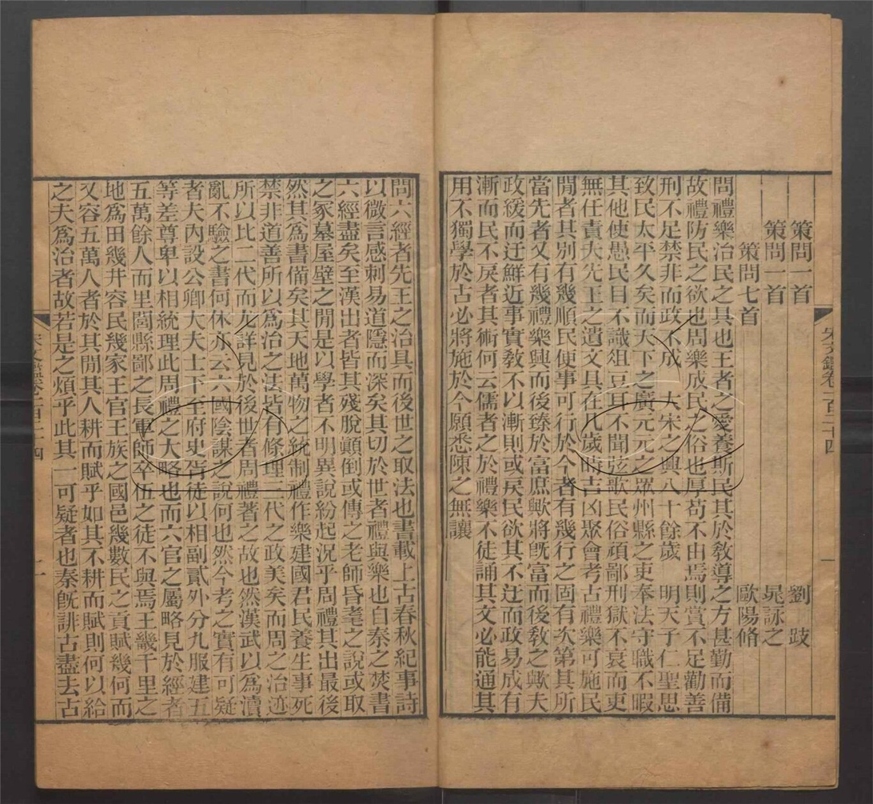 策問一首　劉跂
策問一首　晁詠之
策問七首　歐陽脩
問禮樂治民之具也王者之愛養斯民其於敎導之方甚勤而備
故禮防民之欲也周樂成民之俗也厚苟不由焉則賞不足勸善
刑不足禁非而政不成　大宋之興八十餘歲　明天子仁聖思
致民太平久矣而天下之廣元元之眾州縣之吏奉法守職不暇
其他使愚民目不識俎豆耳不聞弦歌民俗頑鄙刑獄不衰而吏
無任責夫先王之遺文具在凡歲時吉凶聚會考古禮樂可施民
閒者其別有幾順民便事可行於今者有幾行之固有次第其所
當先者又有幾禮樂興而後臻於富庶歟將旣富而後敎之歟夫
政緩而迂鮮近事實敎不以漸則或戾民欲其不迂而政易成有
漸而民不戾者其術何云儒者之於禮樂不徒誦其文必能通其
用不獨學於古必將施於今願悉陳之無讓
宋文鑑卷一百二十四　一
問六經者先王之治具而後世之取法也書載上古春秋紀事詩
以微言感刺易道隱而深矣其切於世者禮與樂也自秦之焚書
六經盡矣至漢出者皆其殘脫顚倒或傳之老師昏耄之說或取
之冢墓屋壁之閒是以學者不明異說紛起況乎周禮其出最後
然其爲書備矣其天地萬物之統制禮作樂建國君民養生事死
禁非道善所以爲治之法皆有條理三代之政美矣而周之治迹
所以比二代而尤詳見於後世者周禮著之故也然漢武以爲瀆
亂不驗之書何休亦云六國陰謀之說何也然今考之實有可疑
者夫內設公卿大夫士下至府史胥徒以相副貳外分九服建五
等差尊卑以相統理此周禮之大略也而六官之屬略見於經者
五萬餘人而里閭縣鄙之長軍師卒伍之徒不與焉王畿千里之
地爲田幾井容民幾家王官王族之國邑幾數民之貢賦幾何而
又容五萬人者於其閒其人耕而賦乎如其不耕而賦則何以給
之夫爲治者故若是之煩乎此其一可疑者也秦旣誹古盡去古
宋文鑑卷一百二十四